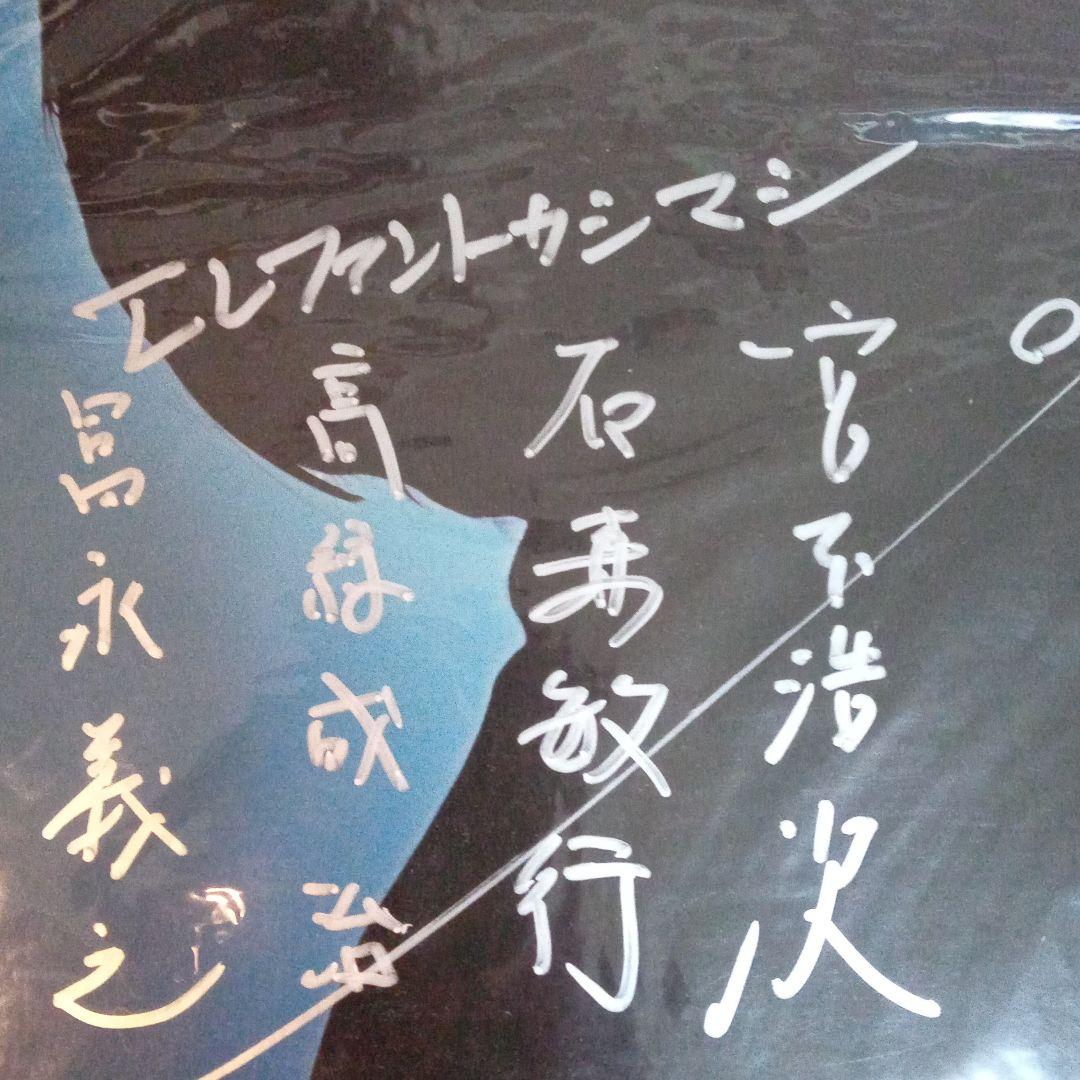 エレファントカシマシ
宮本浩次
石森敏行
高緑成治
冨永義之